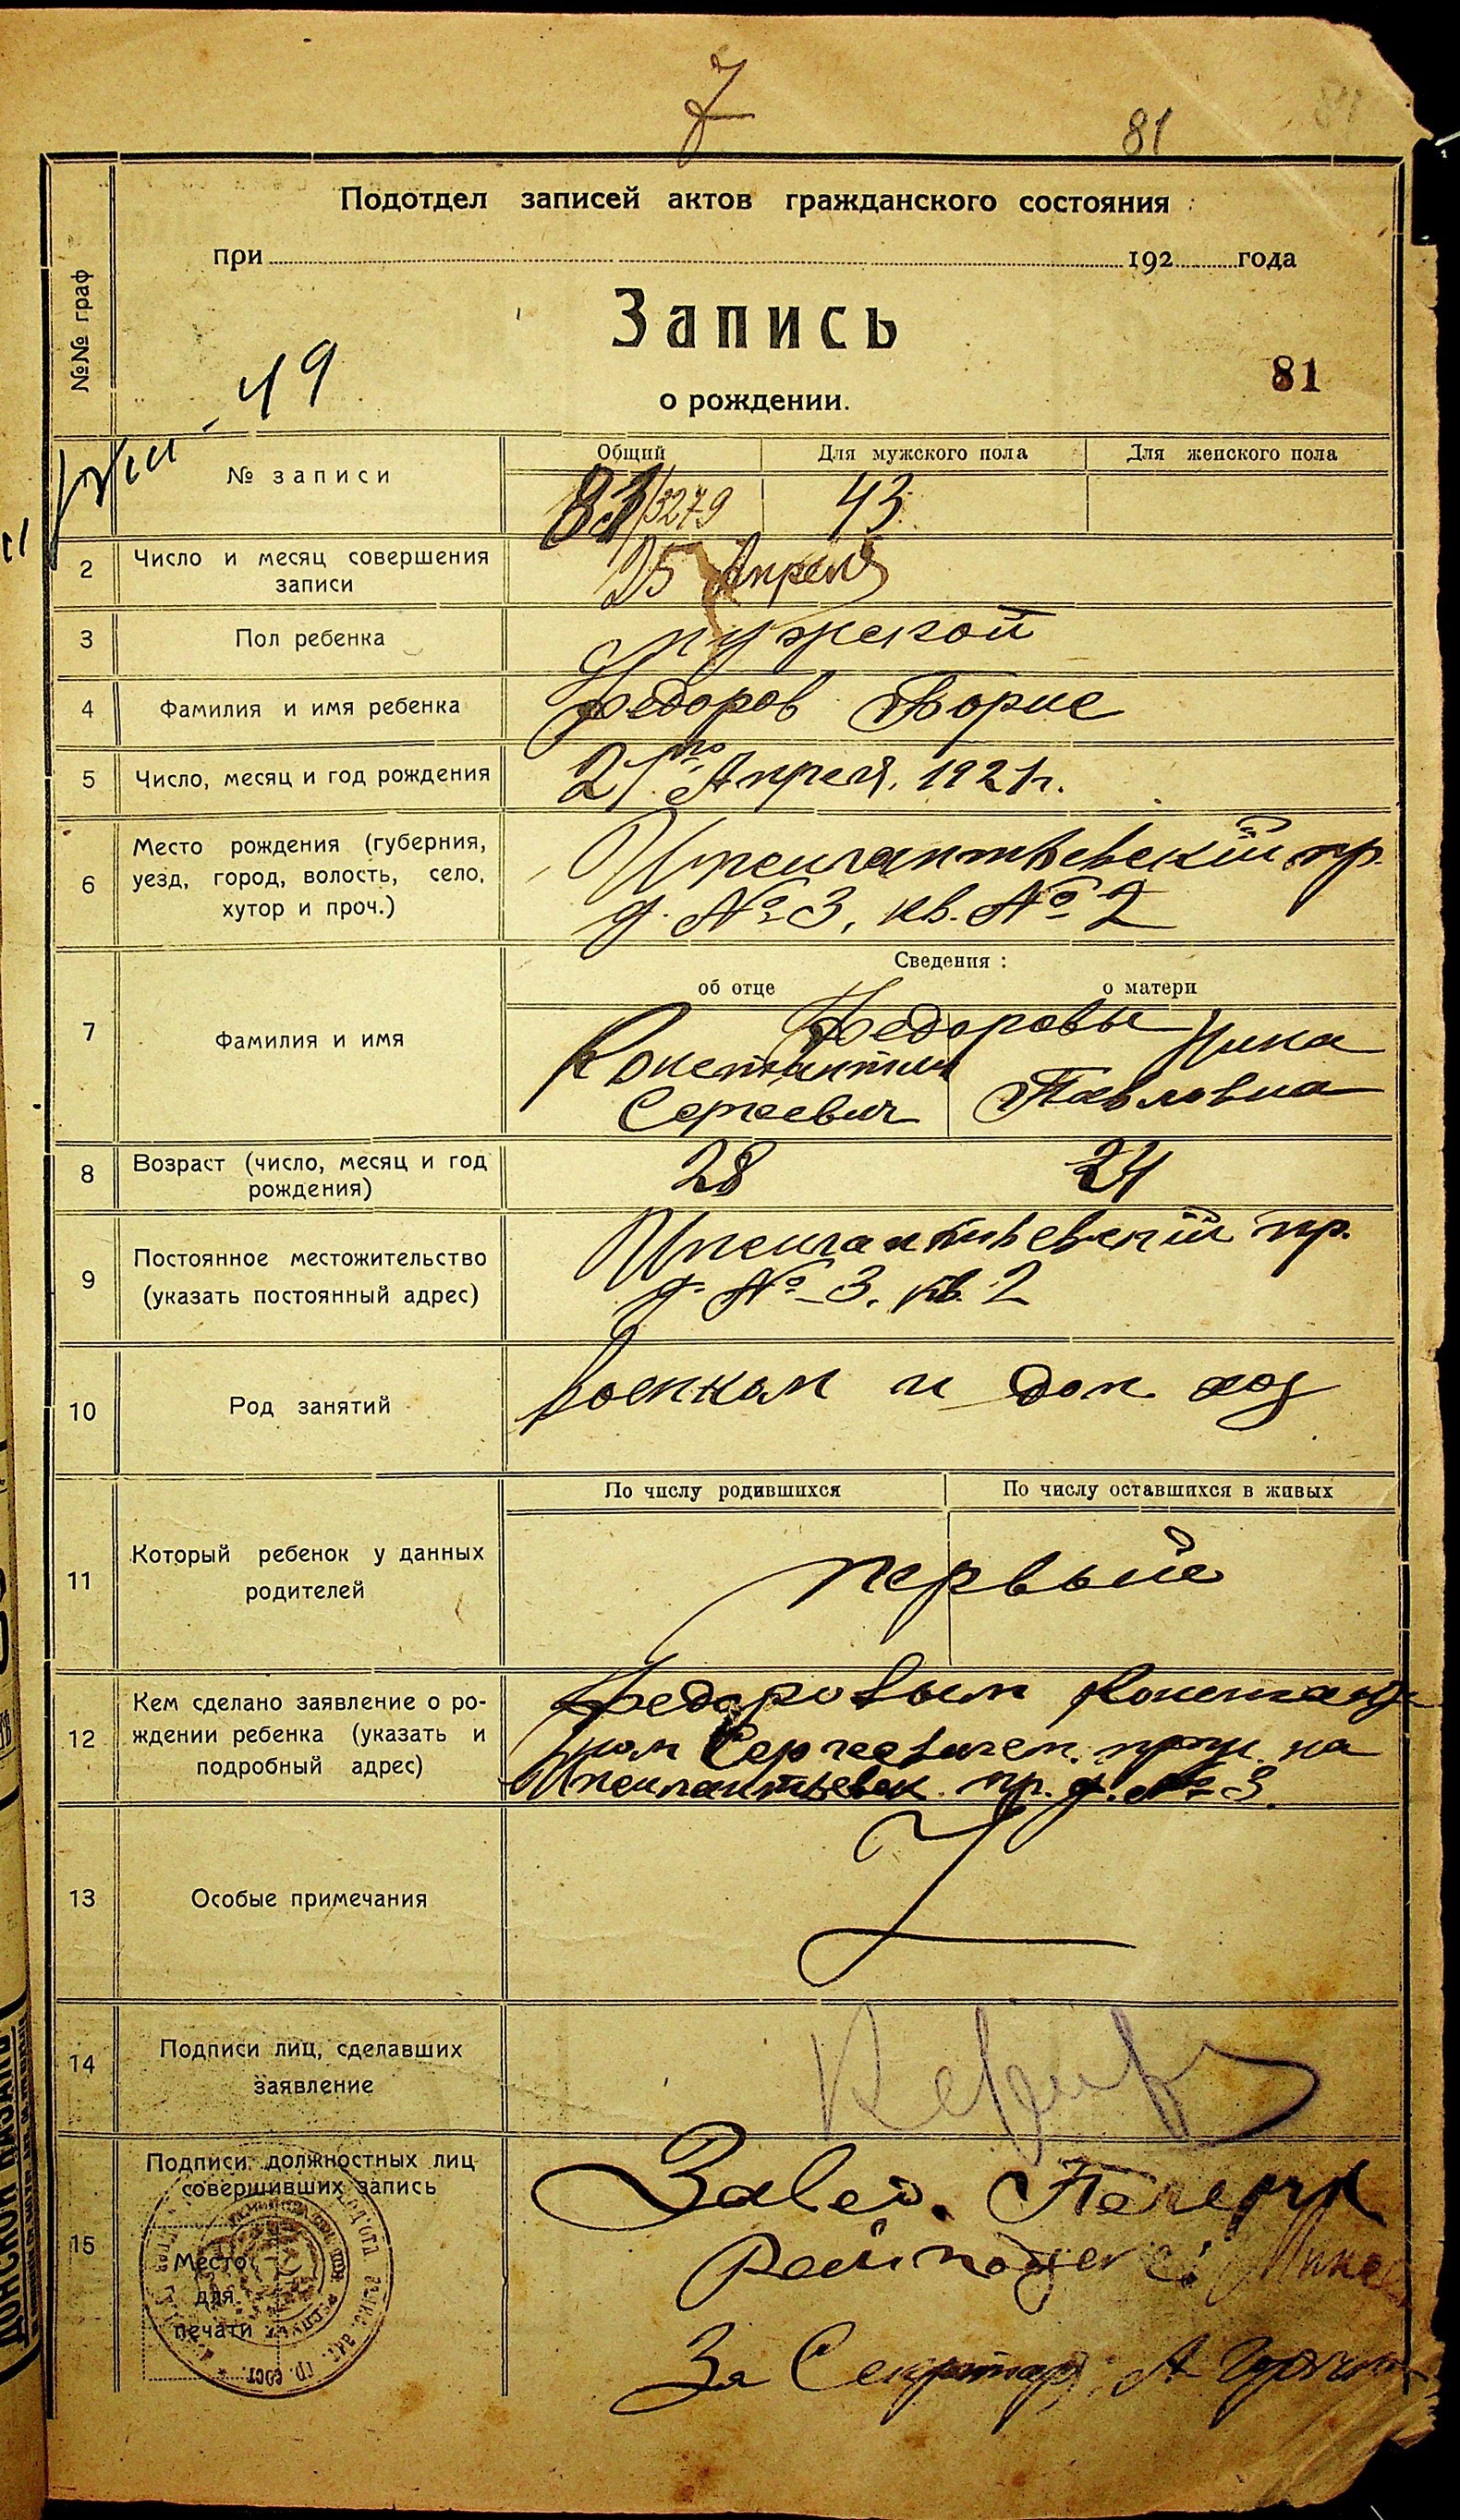 7
81
Подотдел записей актов гражданского состояния
при 192 года
№№ граф
Запись
49
81
о рождении.
№ записи
Общий Для мужского пола Для женского пола
83/3279 43
2 Число и месяц совершения записи
25 Апреля
3 Пол ребенка
мужской
4 Фамилия и имя ребенка
Федоров Борис
5 Число, месяц и год рождения
21го Апреля, 1921 г.
6 Место рождения (губерния,
уезд, город, волость, село,
хутор и проч.)
пр.
д. № 3, кв. № 2
Сведения :
об отце о матери
7 Фамилия и имя
Федоровы
Константин Нина
Сергеевич Павловна
8 Возраст (число, месяц и год
рождения)
28 24
9 Постоянное местожительство
(указать постоянный адрес)
пр.
д. № 3, кв. 2
10 Род занятий
Военком и дом хоз
По числу родившихся По числу оставшихся в живых
11 Который ребенок у данных
родителей
первый
12 Кем сделано заявление о ро-
ждении ребенка (указать и
подробный адрес)
Федоровым Константи
ном Сергеевичем, прож. на
пр. д. № 3.
13 Особые примечания
14 Подписи лиц, сделавших
заявление
15 Подписи должностных лиц
совершивших запись
Место
для
печати
Завед.
За Секретар. А